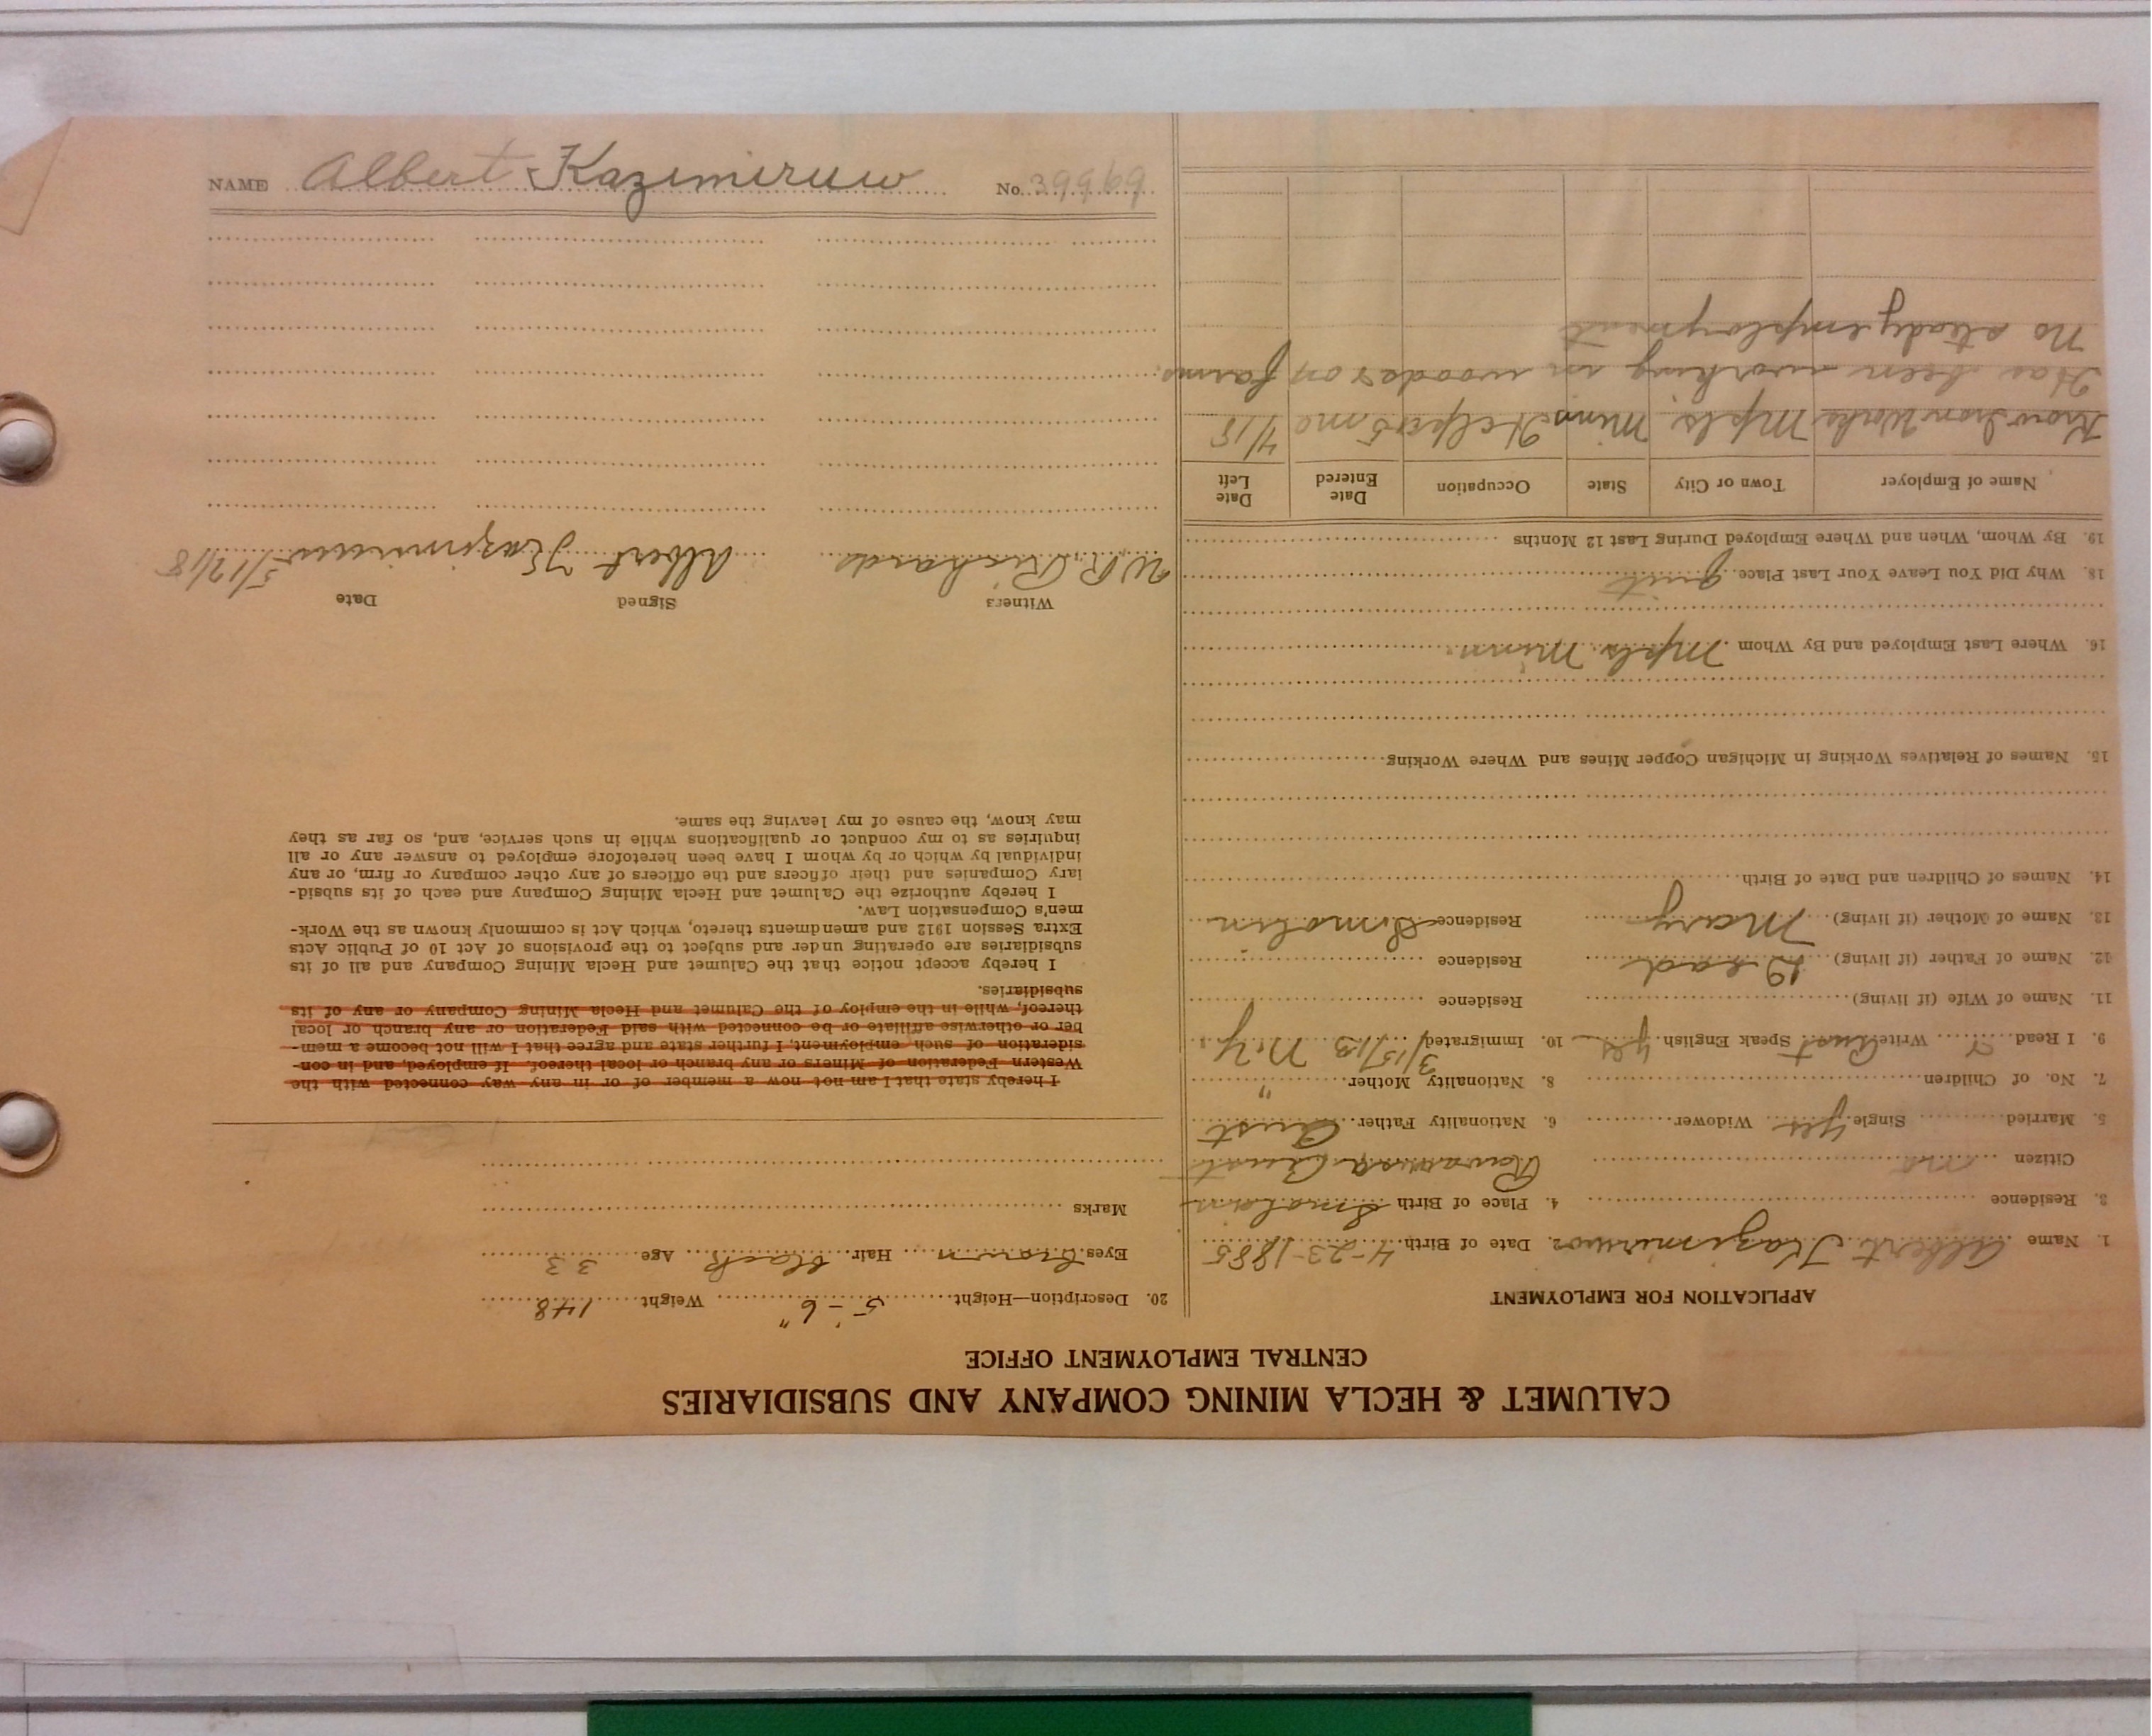 CALUMET & HECLA MINING COMPANY AND SUBSIDIARIES
CENTRAL EMPLOYMENT OFFICE
APPLICATION FOR EMPLOYMENT
1. Name Albert Kazimiruw 2. Date of Birth 4-23-1885
3. Residence 4. Place of Birth Smolin
Citizen no Rawaruska Aust
5. Married Single yes Widower 6. Nationality Father Aust
7. No. of Children 8. Nationality Mother "
9. I Read Y Write Aust Speak English yes 10. Immigrated 3/15/13 N.Y
11. Name of Wife (if living) Residence
12. Name of Father (if living) Dead Residence
13. Name of Mother (if living) Mary Residence Smolin
14. Names of Children and Date of Birth
15. Names of Relatives Working in Michigan Copper Mines and Where Working
16. Where Last Employed and By Whom Mpls. Minn.
18. Why Did You Leave Your Last Place quit
19. By Whom, When and Where Employed During Last 12 Months
Name of Employer Town or City State Occupation Date Entered Date Left
Iron Works Mpls. Minn Helper 5 mo 4/18
Has been working in woods or on farms
No steady employment
20. Description—Height 5'-6" Weight 148
Eyes brown Hair black Age 33
Marks
I hereby state that I am not now a member of or in any way connected with the
Western Federation of Miners or any branch or local thereof. If employed, and in con-
sideration of such employment, I further state and agree that I will not become a mem-
ber or otherwise affiliate or be connected with said Federation or any branch or local
thereof, while in the employ of the Calumet and Hecla Mining Company or any of its
subsidiaries.
I hereby accept notice that the Calumet and Hecla Mining Company and all of its
subsidiaries are operating under and subject to the provisions of Act 10 of Public Acts
Extra Session 1912 and amendments thereto, which Act is commonly known as the Work-
men's Compensation Law.
I hereby authorize the Calumet and Hecla Mining Company and each of its subsid-
iary Companies and their officers and the officers of any other company or firm, or any
individual by which or by whom I have been heretofore employed to answer any or all
inquiries as to my conduct or qualifications while in such service, and, so far as they
may know, the cause of my leaving the same.
Witness Signed Date
W.R. Richards Albert Kazimiruw 5/12/18
NAME Albert Kazimiruw No. 39969